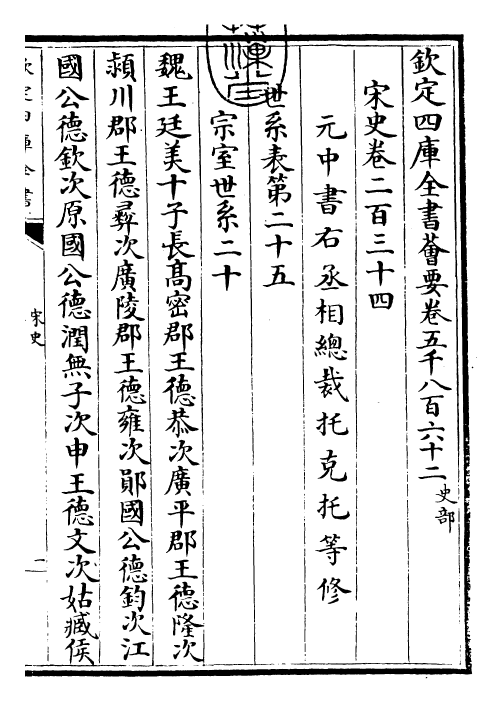 欽定四庫全書薈要卷五千八百六十二 史部
宋史卷二百三十四
元中書右丞相總裁托克托等修
世系表第二十五
宗室世系二十
魏王廷美十子長髙密郡王德恭次廣平郡王德隆次
潁川郡王德彞次廣陵郡王德雍次鄖國公德鈞次江
國公德欽次原國公德潤無子次申王德文次姑臧侯
欽定四庫全書
宋史